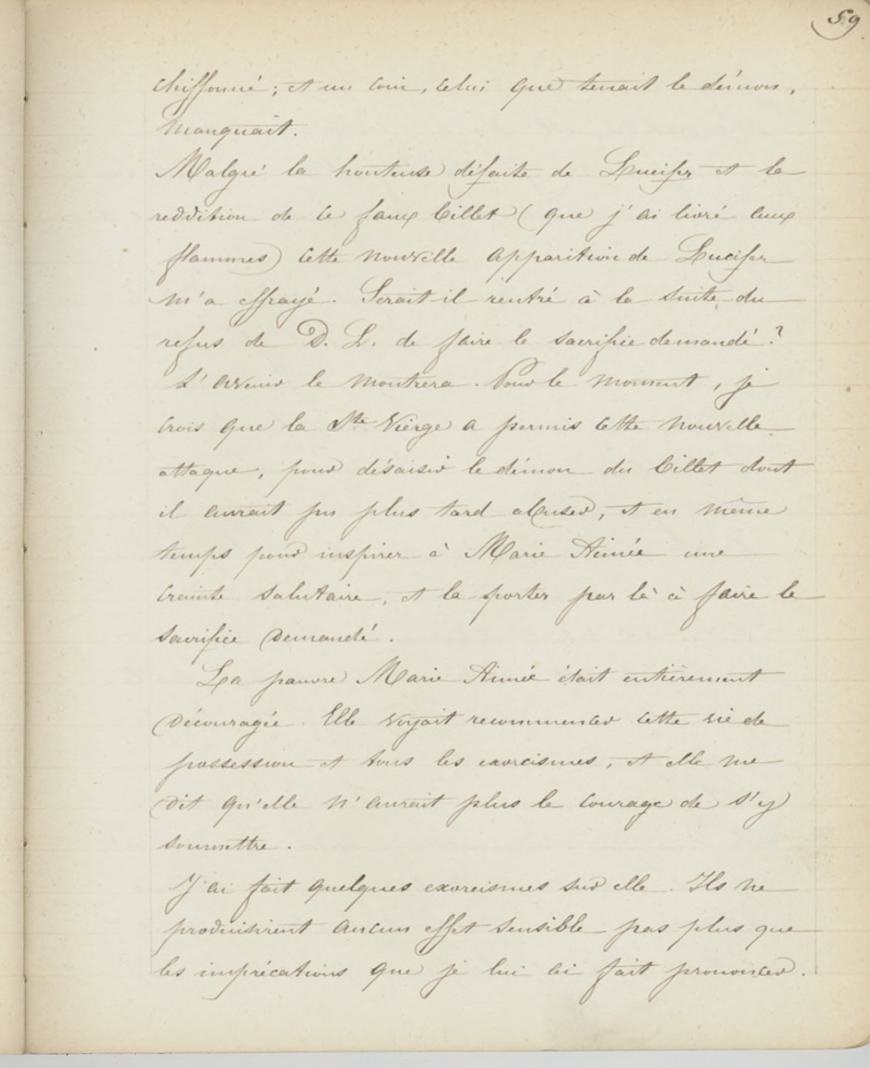 59
chiffonné ; et un coin, celui que tenait le démon,
manquait.
Malgré la honteuse défaite de Lucifer et la
reddition de ce faux billet (que j'ai livré aux
flammes) cette nouvelle apparition de Lucifer
m'a effrayé. Serait-il rentré à la suite du
refus de D. L. de faire le sacrifice demandé ?
L'avenir le montrera. Pour le moment, je
crois que la Ste Vierge a permis cette nouvelle
attaque, pour désaisir le démon du billet dont
il aurait pu plus tard abuser, et en même
temps pour inspirer à Marie Aimée une
crainte salutaire, et la porter par là à faire le
sacrifice demandé.
La pauvre Marie Aimée était entièrement
découragée. Elle voyait recommencer cette vie de
possession et tous les exorcismes, et elle me
dit qu'elle n'aurait plus le courage de s'y
soumettre.
J'ai fait quelques exorcismes sur elle. Ils ne
produisirent aucun effet sensible pas plus que
les imprécations que je lui ai fait prononcer.